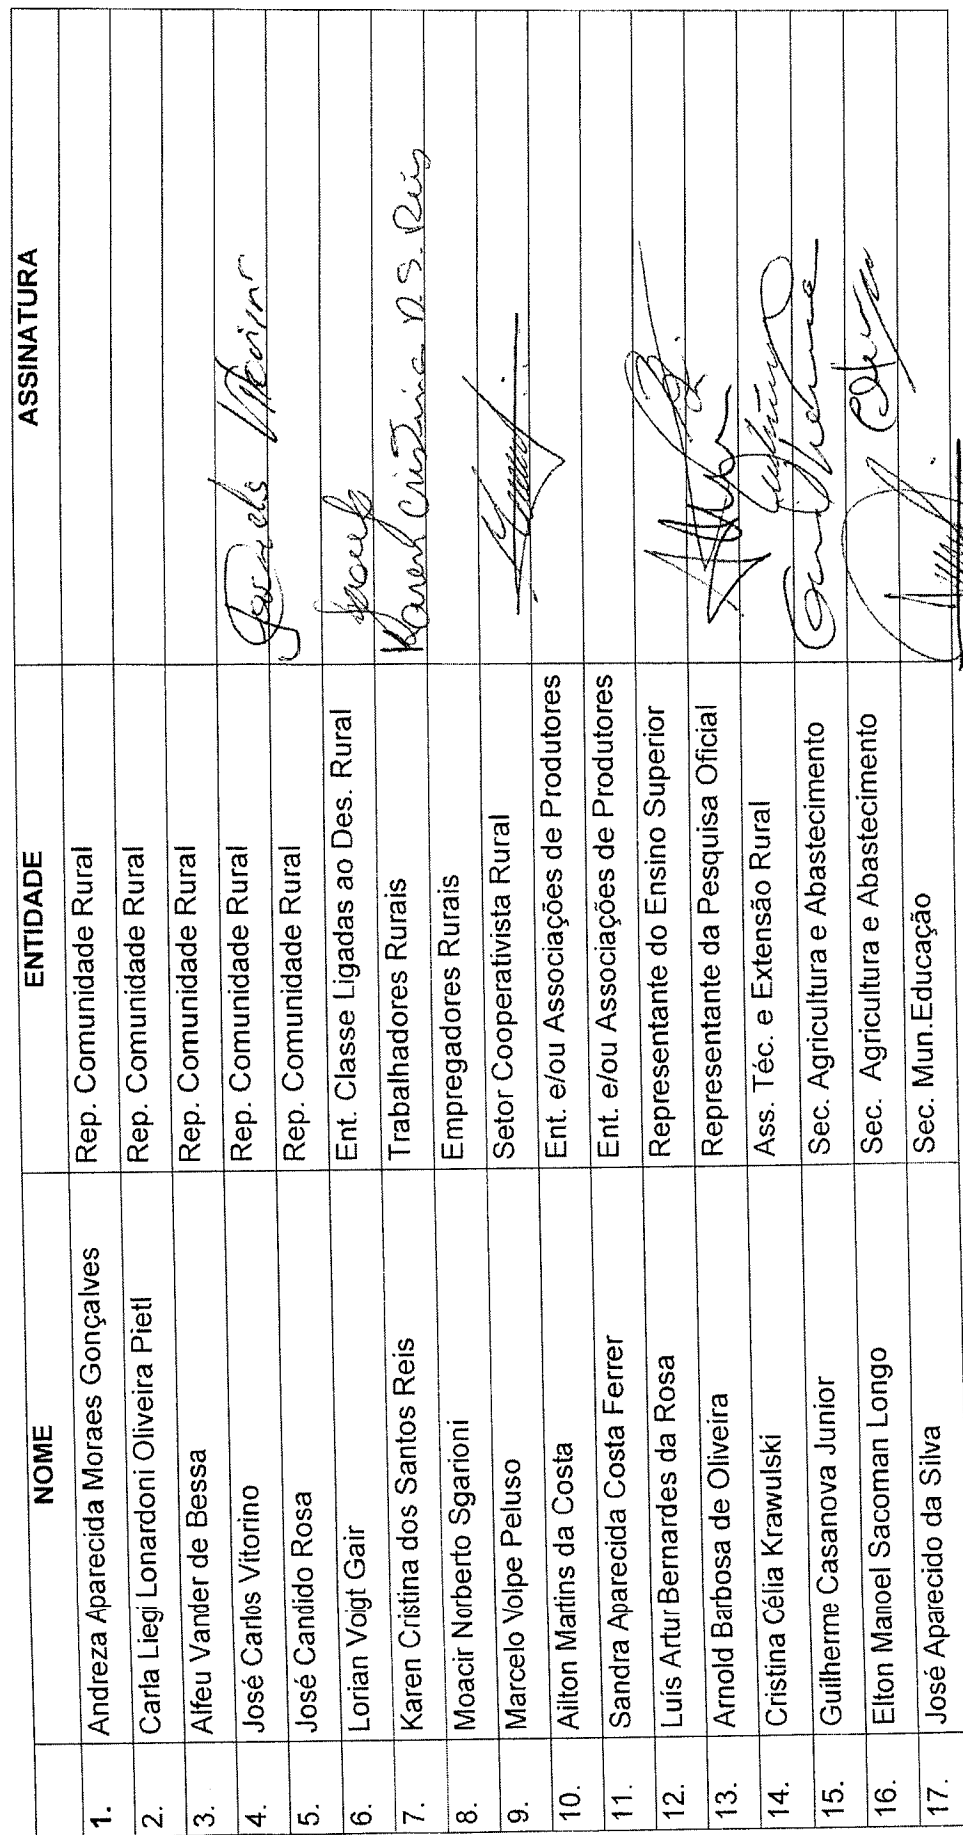 NOME ENTIDADE ASSINATURA
1. Andreza Aparecida Moraes Gonçalves Rep. Comunidade Rural
2. Carla Liegi Lonardoni Oliveira Pietl Rep. Comunidade Rural
3. Alfeu Vander de Bessa Rep. Comunidade Rural
4. José Carlos Vitorino Rep. Comunidade Rural
5. José Candido Rosa Rep. Comunidade Rural
6. Lorian Voigt Gair Ent. Classe Ligadas ao Des. Rural
7. Karen Cristina dos Santos Reis Trabalhadores Rurais Karen Cristina D.S. Reis
8. Moacir Norberto Sgarioni Empregadores Rurais
9. Marcelo Volpe Peluso Setor Cooperativista Rural
10. Ailton Martins da Costa Ent. e/ou Associações de Produtores
11. Sandra Aparecida Costa Ferrer Ent. e/ou Associações de Produtores
12. Luís Artur Bernardes da Rosa Representante do Ensino Superior
13. Arnold Barbosa de Oliveira Representante da Pesquisa Oficial
14. Cristina Célia Krawulski Ass. Téc. e Extensão Rural
15. Guilherme Casanova Junior Sec. Agricultura e Abastecimento
16. Elton Manoel Sacoman Longo Sec. Agricultura e Abastecimento
17. José Aparecido da Silva Sec. Mun.Educação